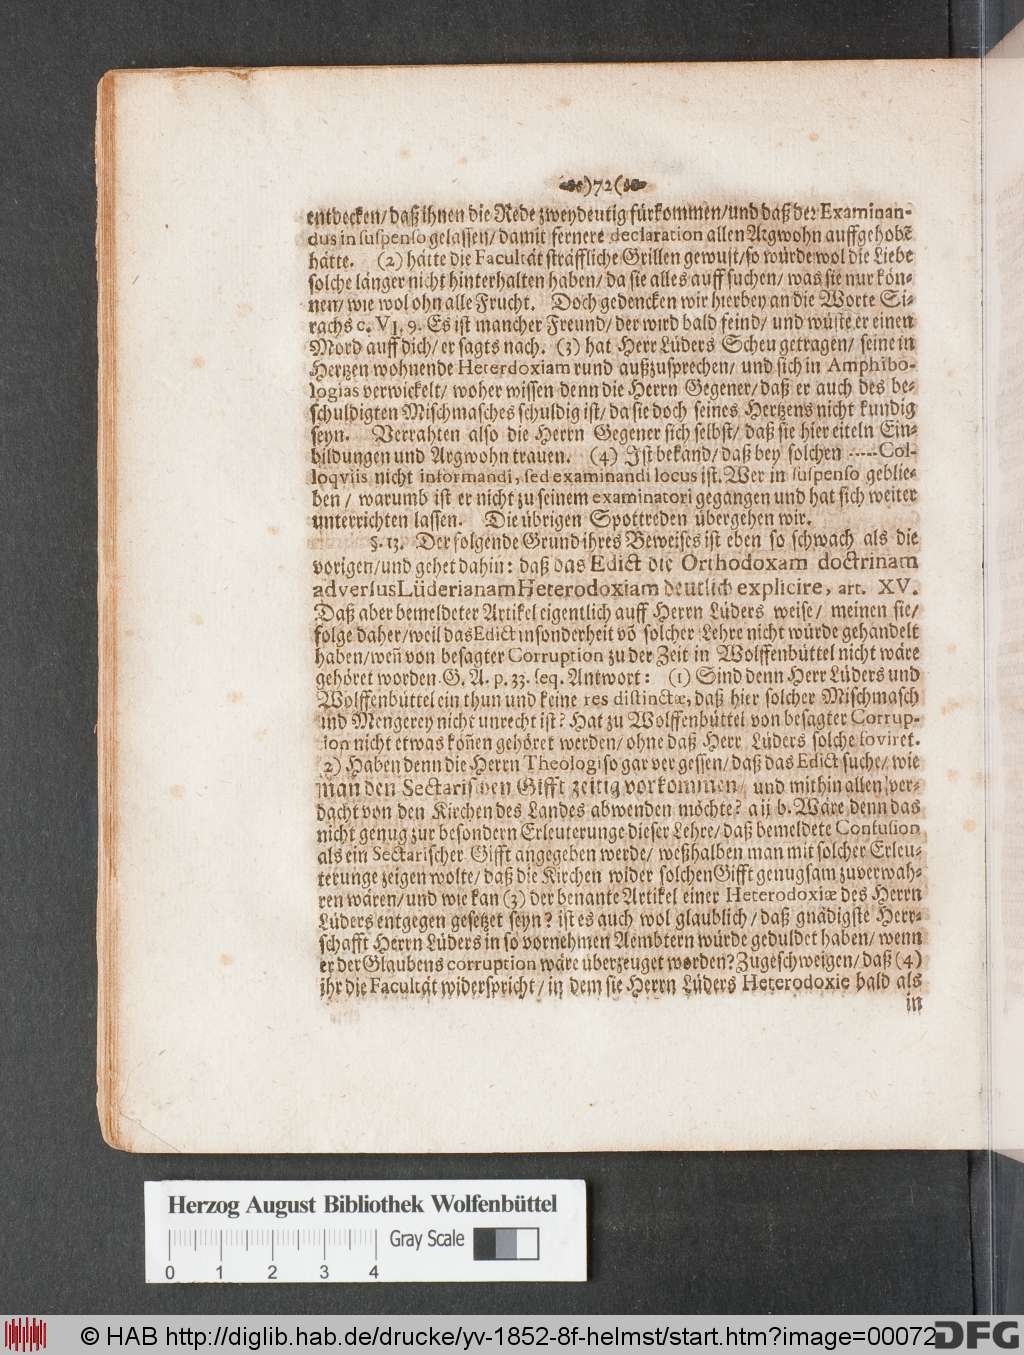 )72(
entdecken/ daß ihnen die Rede zweydeutig fürkommen/ und daß der Examinan-
dus in suspenso gelassen/ damit fernere declaration allen Argwohn auffgehobẽ
hätte. (2) hätte die Facultät sträffliche Grillen gewust/ so würde wol die Liebe
solche länger nicht hinterhalten haben/ da sie alles auff suchen/ was sie nur kön-
nen/ wie wol ohn alle Frucht. Doch gedencken wir hierbey an die Worte Si-
rachs c. VI. 9. Es ist mancher Freund/ der wird bald feind/ und wüste er einen
Mord auff dich/ er sagts nach. (3) hat Herr Lüders Scheu getragen/ seine in
Hertzen wohnende Heterdoxiam rund außzusprechen/ und sich in Amphibo-
logias verwickelt/ woher wissen denn die Herrn Gegener/ daß er auch des be-
schuldigten Mischmasches schuldig ist/ da sie doch seines Hertzens nicht kundig
seyn. Verrahten also die Herrn Gegener sich selbst/ daß sie hier eiteln Ein-
bildungen und Argwohn trauen. (4) Ist bekand/ daß bey solchen -----Col-
loqviis nicht informandi, sed examinandi locus ist. Wer in suspenso geblie-
ben/ warumb ist er nicht zu seinem examinatori gegangen und hat sich weiter
unterrichten lassen. Die übrigen Spottreden übergehen wir.
§. 13. Der folgende Grund ihres Beweises ist eben so schwach als die
vorigen/ und gehet dahin: daß das Edict die Orthodoxam doctrinam
adversus Lüderianam Heterodoxiam deutlich explicire, art. XV.
Daß aber bemeldeter Artikel eigentlich auff Herrn Lüders weise/ meinen sie/
folge daher/ weil das Edict insonderheit võ solcher Lehre nicht würde gehandelt
haben/ weñ von besagter Corruption zu der Zeit in Wolffenbüttel nicht wäre
gehöret worden. G. A. p. 33. seq. Antwort: (1) Sind denn Herr Lüders und
Wolffenbüttel ein thun und keine res distinctæ, daß hier solcher Mischmasch
und Mengerey nicht unrecht ist? Hat zu Wolffenbüttel von besagter Corrup-
tion nicht etwas köñen gehöret werden/ ohne daß Herr Lüders solche foviret.
2) Haben denn die Herrn Theologi so gar vergessen/ daß das Edict suche/ wie
man den Sectarischen Gifft zeitig vorkommen/ und mithin allen ver-
dacht von den Kirchen des Landes abwenden möchte? a ij b. Wäre denn das
nicht genug zur besondern Erleuterunge dieser Lehre/ daß bemeldete Confusion
als ein Sectarischer Gifft angegeben werde/ weßhalben man mit solcher Erleu-
terunge zeigen wolte/ daß die Kirchen wider solchen Gifft genugsam zuverwah-
ren wären/ und wie kan (3) der benante Artikel einer Heterodoxiæ des Herrn
Lüders entgegen gesetzet seyn? ist es auch wol glaublich/ daß gnädigste Herr-
schafft Herrn Lüders in so vornehmen Aembtern würde geduldet haben/ wenn
er der Glaubens corruption wäre überzeuget worden? Zugeschweigen/ daß (4)
ihr die Facultät widerspricht/ in dem sie Herrn Lüders Heterodoxie bald als
in
Herzog August Bibliothek Wolfenbüttel
Gray Scale
0 1 2 3 4
© HAB http://diglib.hab.de/drucke/yv-1852-8f-helmst/start.htm?image=00072
DFG